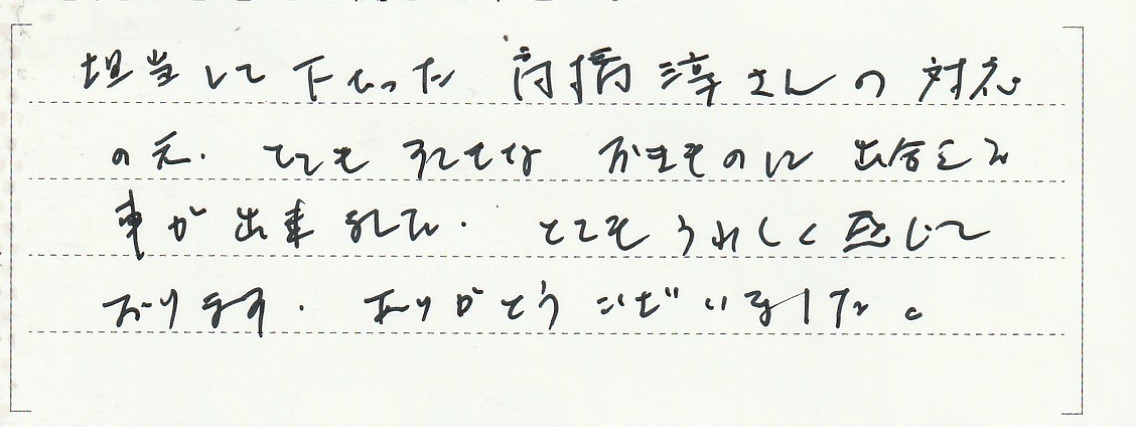 担当して下さった 高橋淳さんの対応
の元、とても すてきな おきものに 出合える
事が出来ました。とてもうれしく感じて
おります。ありがとうございました。